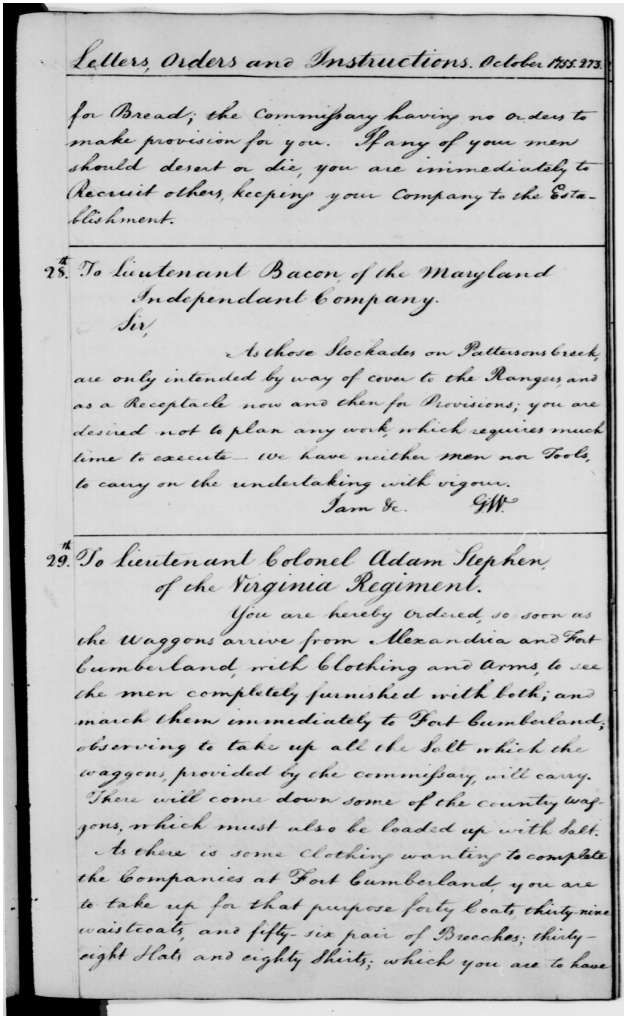 Letters, Orders and Instructions. October 1755. 273.
for Bread; the Commissary having no orders to
make provision for you. If any of your men
should desert or die, you are immediately to
Recruit others, keeping your Company to the Esta-
blishment.
28th. To Lieutenant Bacon, of the Maryland
Independant Company.
Sir,
As those Stockades on Pattersons Creek,
are only intended by way of cover to the Rangers, and
as a Receptacle now and then for Provisions; you are
desired not to plan any work, which requires much
time to execute — We have neither men nor Tools,
to carry on the undertaking with vigour.
I am &c. GW.
29th. To Lieutenant Colonel Adam Stephen,
of the Virginia Regiment.
You are hereby Ordered, so soon as
the Waggons arrive from Alexandria and Fort
Cumberland, with Clothing and Arms, to see
the men completely furnished with both; and
march them immediately to Fort Cumberland;
observing to take up all the Salt which the
waggons, provided by the commissary, will carry.
There will come down some of the country wag-
gons, which must also be loaded up with Salt.
As there is some Clothing wanting to complete
the Companies at Fort Cumberland, you are
to take up for that purpose forty Coats, thirty-nine
waistcoats, and fifty-six pair of Breeches; thirty-
eight Hats and eighty Shirts; which you are to have